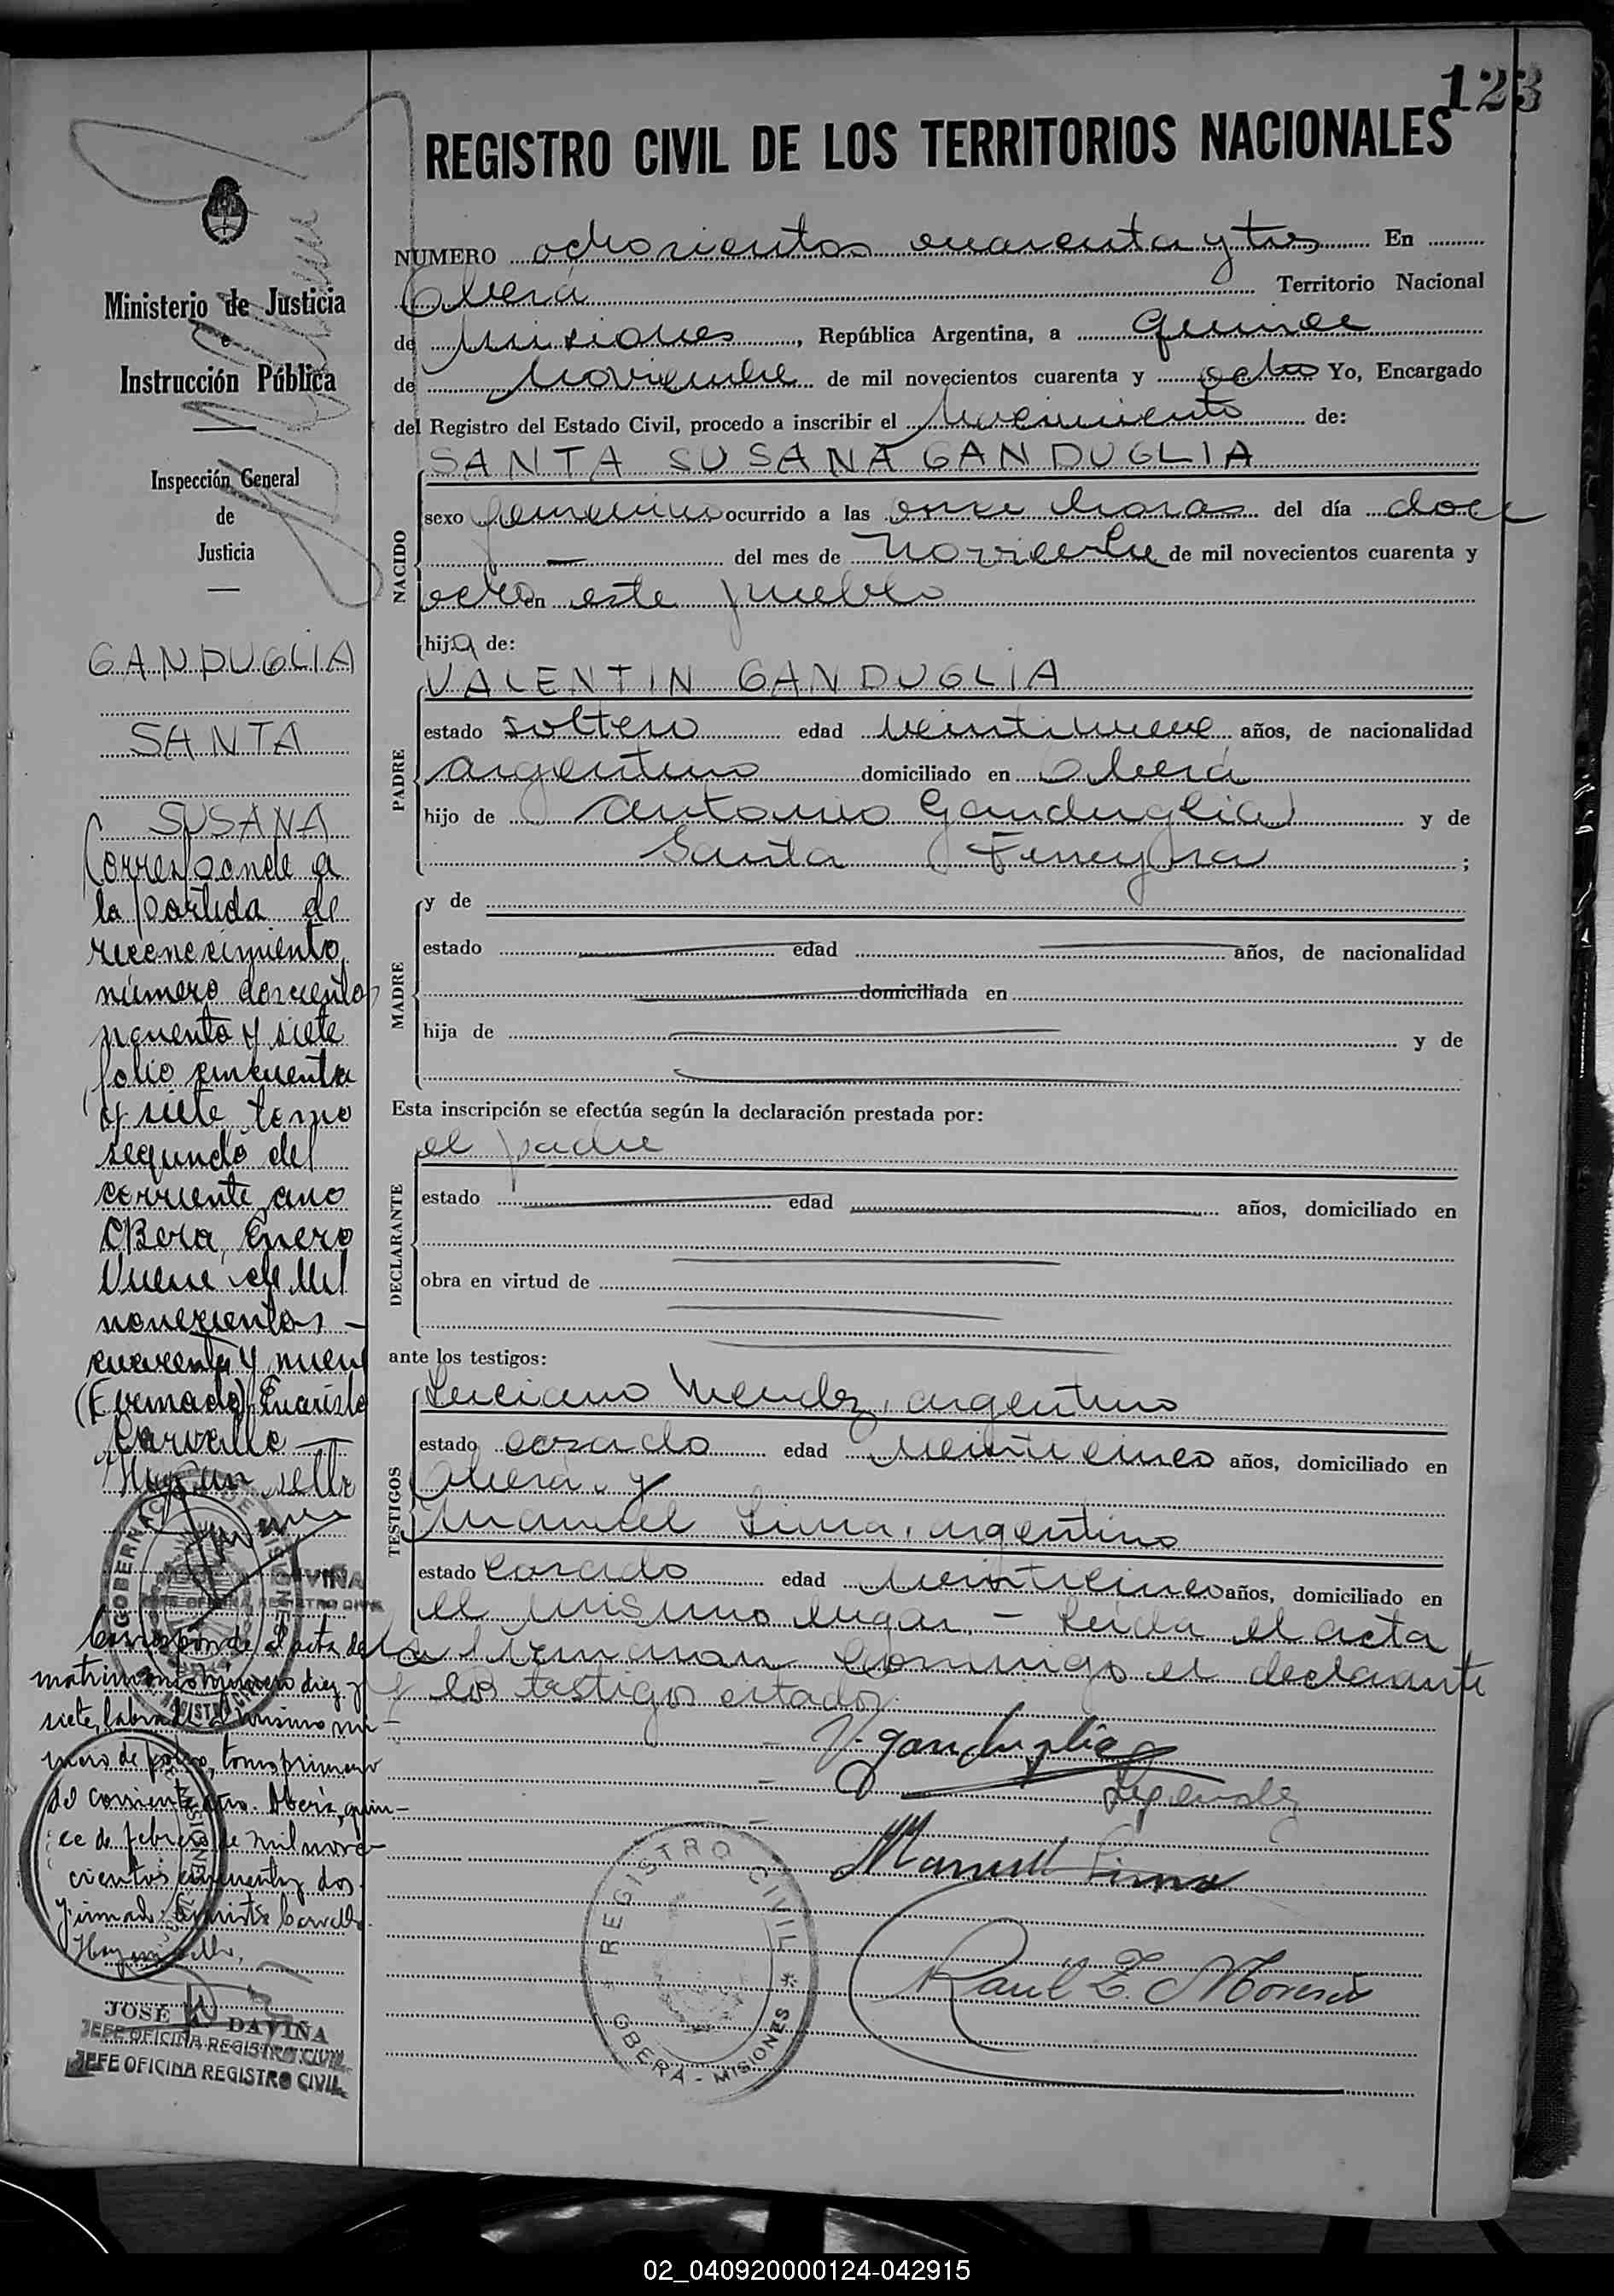 123
REGISTRO CIVIL DE LOS TERRITORIOS NACIONALES
Ministerio de Justicia
e
Instrucción Pública
Inspección General
de
Justicia
GANDUGLIA
SANTA
SUSANA
Corresponde a
la partida de
reconocimiento
número doscientos
noventa y siete
folio cincuenta
y siete tomo
segundo del
corriente año
Obera, Enero
Nueve de Mil
novecientos –
cuarenta y nueve
(Firmado) Evaristo
Carvallo –
Hay un sello
GOBERNACION DE MISIONES
DAVIÑA
JEFE OFICINA REGISTRO CIVIL
Corresponde al acta de
matrimonio número diez y
siete, labrada al mismo nú-
mero de folio, tomo primero
del corriente año. Oberá, quin-
ce de febrero de mil nove-
cientos cincuenta y dos.
Firmado: Evaristo Carvallo.
Hay un sello.
JOSÉ DAVIÑA
JEFE OFICINA REGISTRO CIVIL
JEFE OFICINA REGISTRO CIVIL
NUMERO ochocientos cuarenta y tres En
Oberá Territorio Nacional
de Misiones, República Argentina, a quince
de Noviembre de mil novecientos cuarenta y ocho Yo, Encargado
del Registro del Estado Civil, procedo a inscribir el Nacimiento de:
NACIDO
SANTA SUSANA GANDUGLIA
sexo femenino ocurrido a las once horas del día doce
— del mes de Noviembre de mil novecientos cuarenta y
ocho en este pueblo
hija de:
PADRE
VALENTIN GANDUGLIA
estado soltero edad veintinueve años, de nacionalidad
argentino domiciliado en Oberá
hijo de Antonio Ganduglia y de
Santa Ferreyra ;
MADRE
y de
estado edad años, de nacionalidad
domiciliada en
hija de y de
Esta inscripción se efectúa según la declaración prestada por:
DECLARANTE
el padre
estado edad años, domiciliado en
obra en virtud de
ante los testigos:
TESTIGOS
Luciano Mendez, argentino
estado casado edad veinticinco años, domiciliado en
Oberá y
Manuel Lima, argentino
estado casado edad veinticinco años, domiciliado en
el mismo lugar. – Leida el acta
la firman conmigo el declarante
y los testigos citados.
V. Ganduglia
Manuel Lima
Raul E. Moreno
REGISTRO CIVIL
OBERÁ - MISIONES
02_040920000124-042915